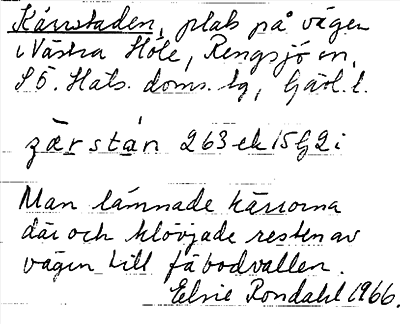 Kärrstaden, plats på vägen
i Västra Höle, Rengsjö sn,
SÖ. Häls. doms. lg, Gävl. l.
ʒærstán 263 ek 15G2i
Man lämnade kärrorna
där och klövjade resten av
vägen till fäbodvallen.
Elsie Rondahl 1966.